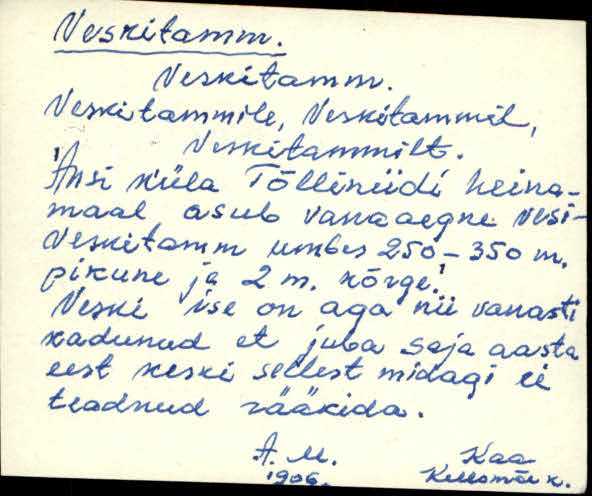 Veskitamm.
Veskitamm.
Veskitammile, Veskitammil,
Veskitammilt.
'Ansi küla Tõlliniidi heina-
maal asub vanaaegne vesi-
veskitamm umbes 250-350 m.
pikune ja 2 m. kõrge.'
Veski ise on aga nii vanasti
kadunud et juba saja aasta
eest keski sellest midagi ei
teadnud rääkida.
A. M. Kaa
1906. k.